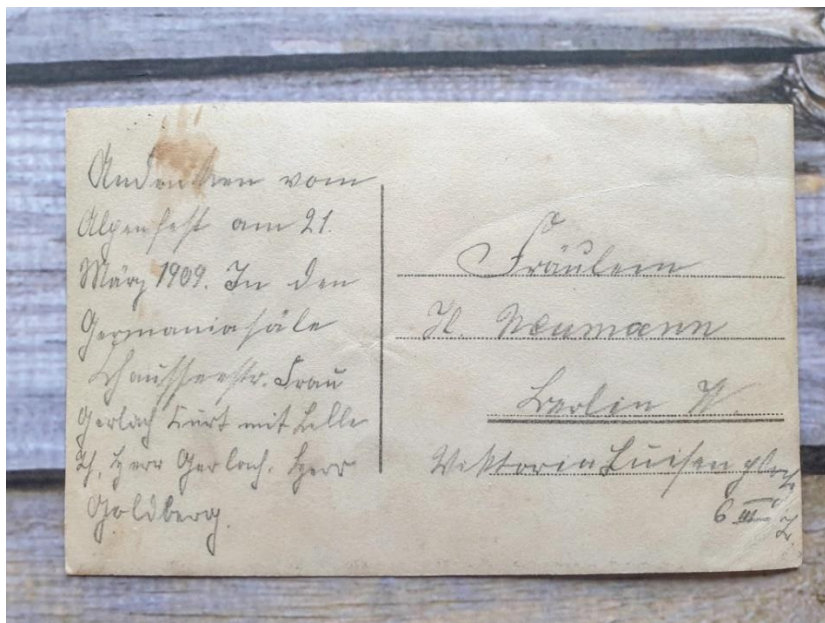 Andenken vom
Alpenfest am 21.
März 1909. In den
Germaniasäle
Chausseestr. Frau
Gerlach Kurt mit Lelle
Herr Gerlach. Herr
Goldberg.
Fräulein
H. Neumann
Berlin W.
Viktoria Luisen platz
6 III